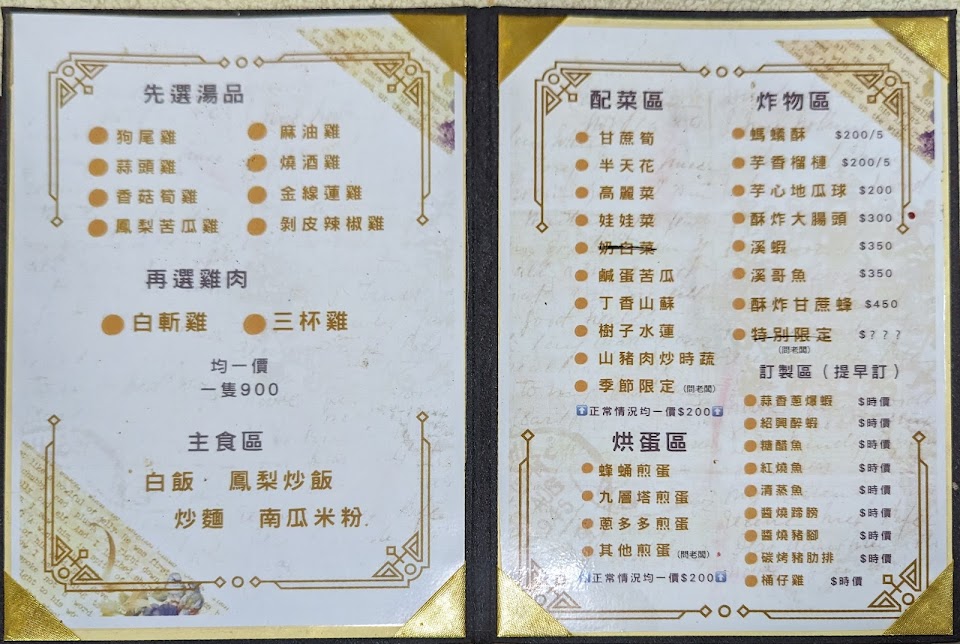 先選湯品
狗尾雞
麻油雞
蒜頭雞
燒酒雞
香菇筍雞
金線蓮雞
鳳梨苦瓜雞
剝皮辣椒雞
再選雞肉
白斬雞
三杯雞
均一價
一隻900
主食區
白飯 鳳梨炒飯
炒麵 南瓜米粉
配菜區
甘蔗筍
半天花
高麗菜
娃娃菜
奶白菜
鹹蛋苦瓜
丁香山蘇
樹子水蓮
山豬肉炒時蔬
季節限定(問老闆)
⬆️正常情況均一價$200⬆️
烘蛋區
蜂蛹煎蛋
九層塔煎蛋
蔥多多煎蛋
其他煎蛋(問老闆)
⬆️正常情況均一價$200⬆️
炸物區
螞蟻酥 $200/5
芋香榴槤 $200/5
芋心地瓜球 $200
酥炸大腸頭 $300
溪蝦 $350
溪哥魚 $350
酥炸甘蔗蜂 $450
特別限定 $???
(問老闆)
訂製區(提早訂)
蒜香蔥爆蝦 $時價
紹興醉蝦 $時價
糖醋魚 $時價
紅燒魚 $時價
清蒸魚 $時價
醬燒蹄膀 $時價
醬燒豬腳 $時價
碳烤豬肋排 $時價
桶仔雞 $時價